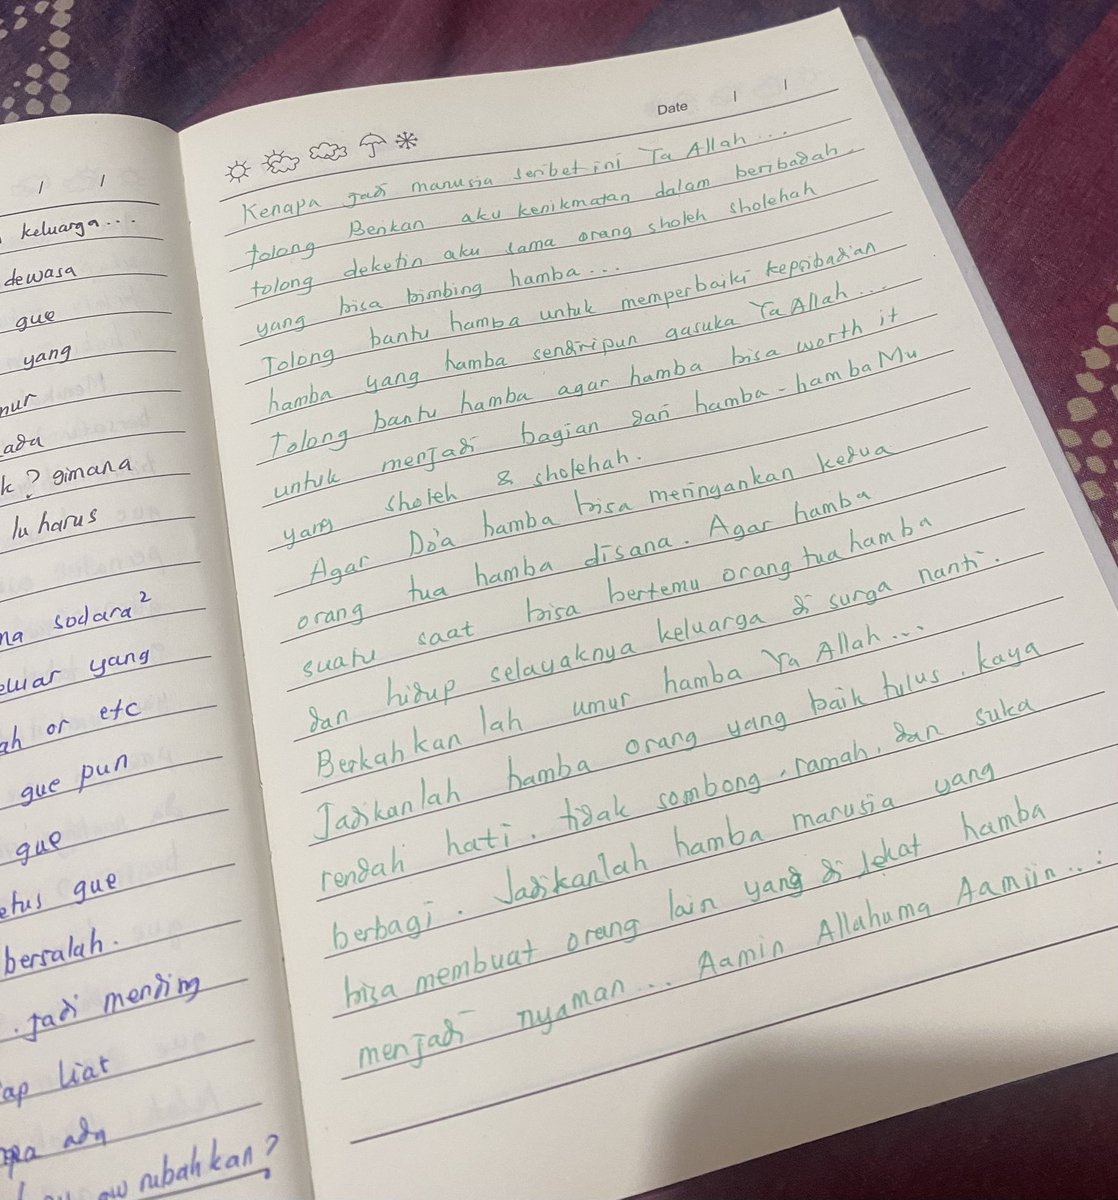 keluarga...
dewasa
gue
yang
ada
k? gimana
lu harus
sodara²
yang
ah or etc
gue pun
gue
etus gue
bersalah.
. Jadi mending
ap liat
ada
rubahkan?
Date / /
Kenapa jadi manusia seribet ini Ya Allah...
tolong Berikan aku kenikmatan dalam beribadah
tolong deketin aku sama orang sholeh sholehah
yang bisa bimbing hamba...
Tolong bantu hamba untuk memperbaiki kepribadian
hamba yang hamba sendiripun gasuka Ya Allah...
Tolong bantu hamba agar hamba bisa worth it
untuk menjadi bagian dari hamba-hambaMu
yang sholeh & sholehah.
Agar Do'a hamba bisa meringankan kedua
orang tua hamba disana. Agar hamba
suatu saat bisa bertemu orang tua hamba
dan hidup selayaknya keluarga di surga nanti.
Berkahkan lah umur hamba Ya Allah...
Jadikanlah hamba orang yang baik tulus, kaya
rendah hati, tidak sombong, ramah, dan suka
berbagi. Jadikanlah hamba manusia yang
bisa membuat orang lain yang di dekat hamba
menjadi nyaman... Aamin Allahuma Aamiin...